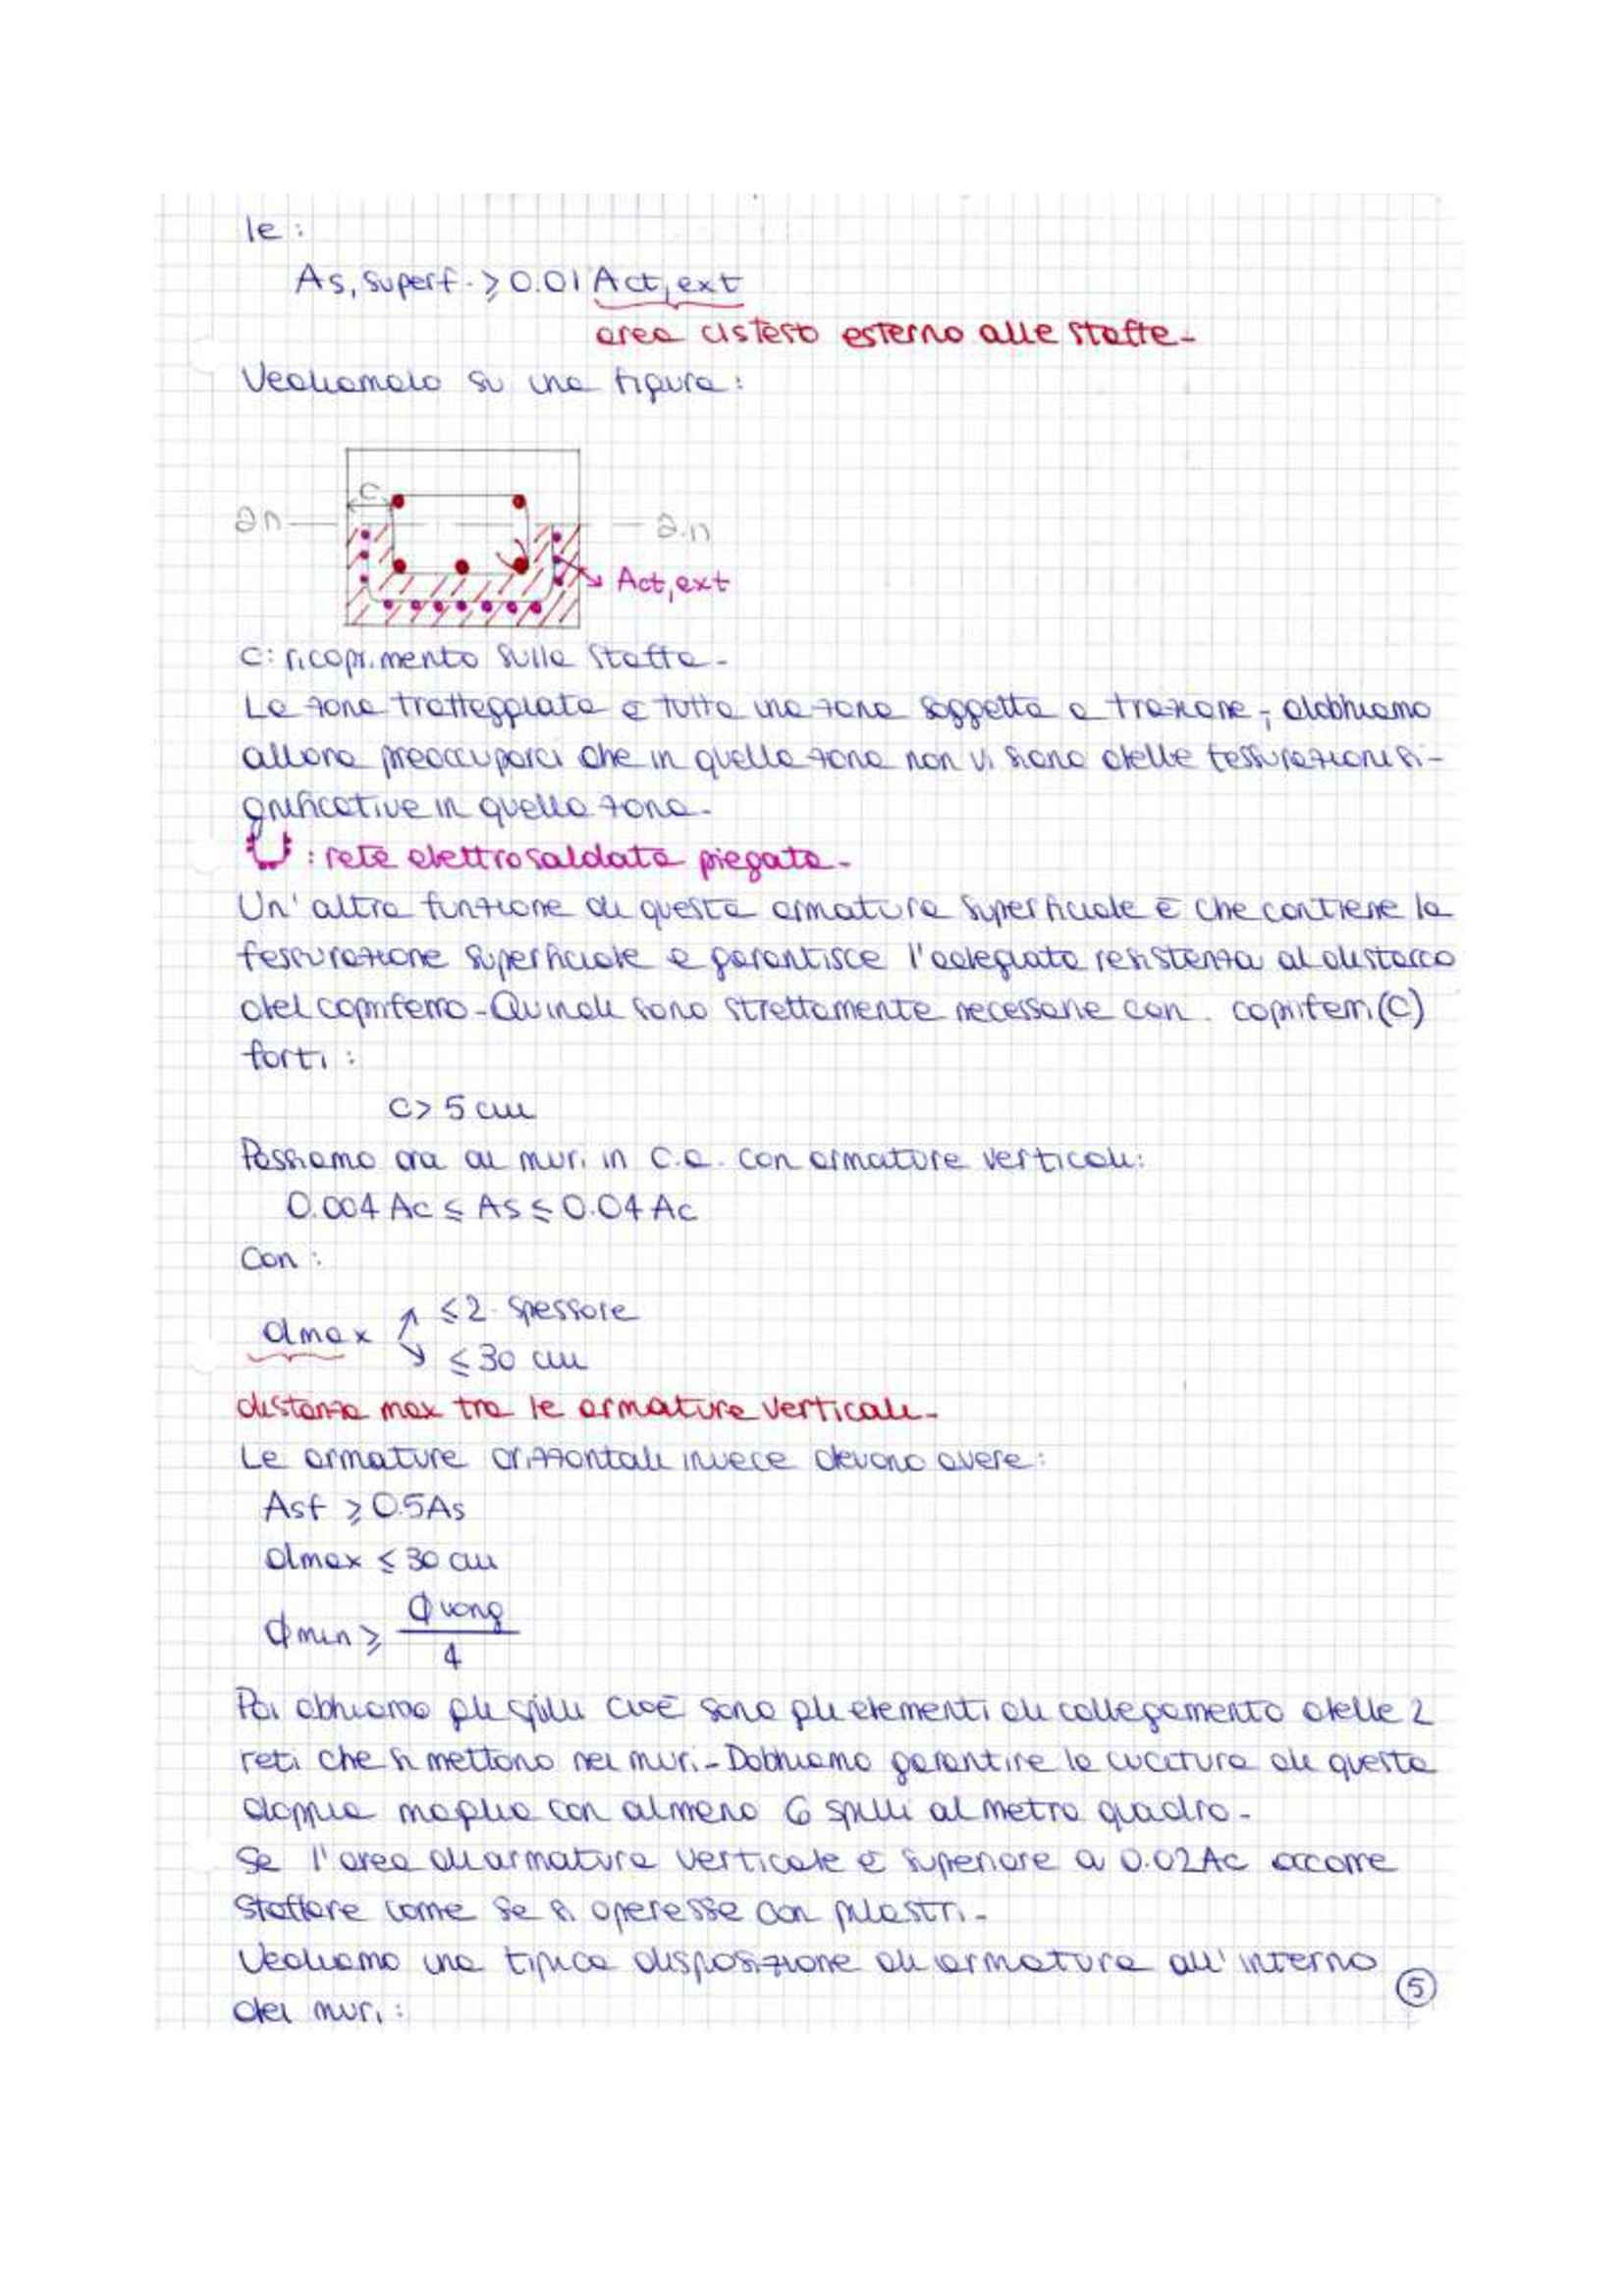 le:
As, superf. ≥ 0.01 Act,ext
area cls teso esterno alle staffe-
Vediamolo su una figura:
c
an
a.n
Act,ext
C: ricoprimento sulla staffa-
La zona tratteggiata è tutta una zona soggetta a trazione; dobbiamo
allora preoccuparci che in quella zona non vi siano delle fessurazioni si-
gnificative in quella zona-
: rete elettrosaldata piegata-
Un'altra funzione di questa armatura superficiale è che contiene la
fessurazione superficiale e garantisce l'adeguata resistenza al distacco
del copriferro-Quindi sono strettamente necessarie con copriferri (C)
forti:
C > 5 cm
Passiamo ora ai muri in c.a. con armature verticali:
0.004 Ac ≤ As ≤ 0.04 Ac
Con:
dmax
≤ 2· spessore
≤ 30 cm
distanza max tra le armature verticali-
Le armature orizzontali invece devono avere:
Asf ≥ 0.5As
dmax ≤ 30 cm
ϕmin ≥ ϕlong / 4
Poi abbiamo gli spilli cioè sono gli elementi di collegamento delle 2
reti che si mettono nei muri-Dobbiamo garantire la cucitura di questa
doppia maglia con almeno 6 spilli al metro quadro-
Se l'area di armatura verticale è superiore a 0.02Ac occorre
staffare come se si operesse con pilastri-
Vediamo una tipica disposizione di armatura all'interno
dei muri:
5